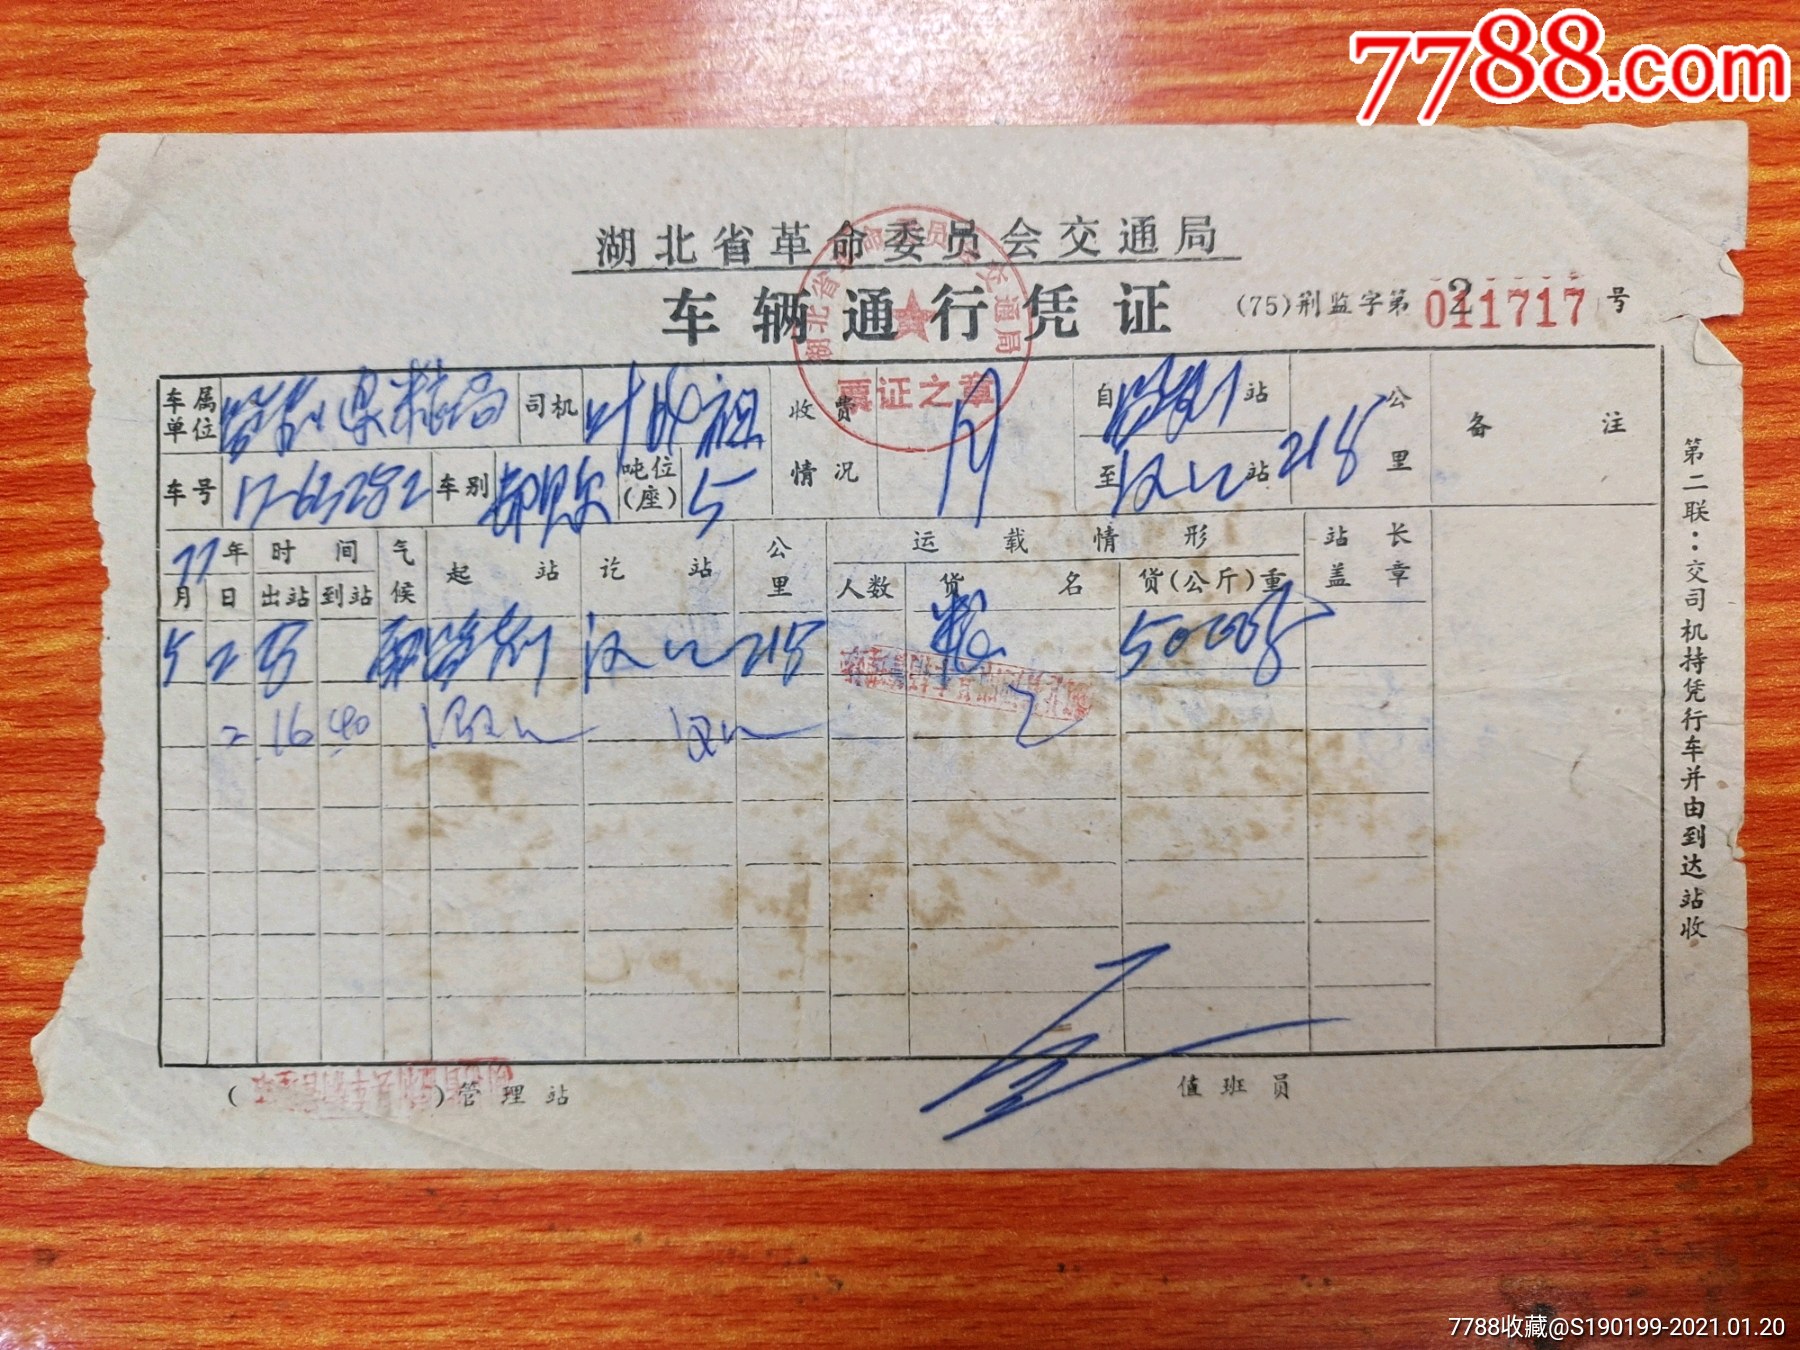 7788.com
湖北省革命委员会交通局
车辆通行凭证
(75)荆监字第 011717 号
2
湖北省革命委员会交通局
票证之章
车属单位 监利县粮局 司机 叶成祖 收费情况 月 自 监利 站 至 汉口 站 218 公里 备注
车号 17-63282 车别 吨位(座) 5
77年 时间 气候 起站 讫站 公里 运载情形 站长盖章
月 日 出站 到站 人数 货名 货(公斤)重
5 2 雨 监利 汉口 218 粮 5000
2 16 40 汉口
( )管理站 值班员
第二联：交司机持凭行车并由到达站收
7788收藏@S190199-2021.01.20